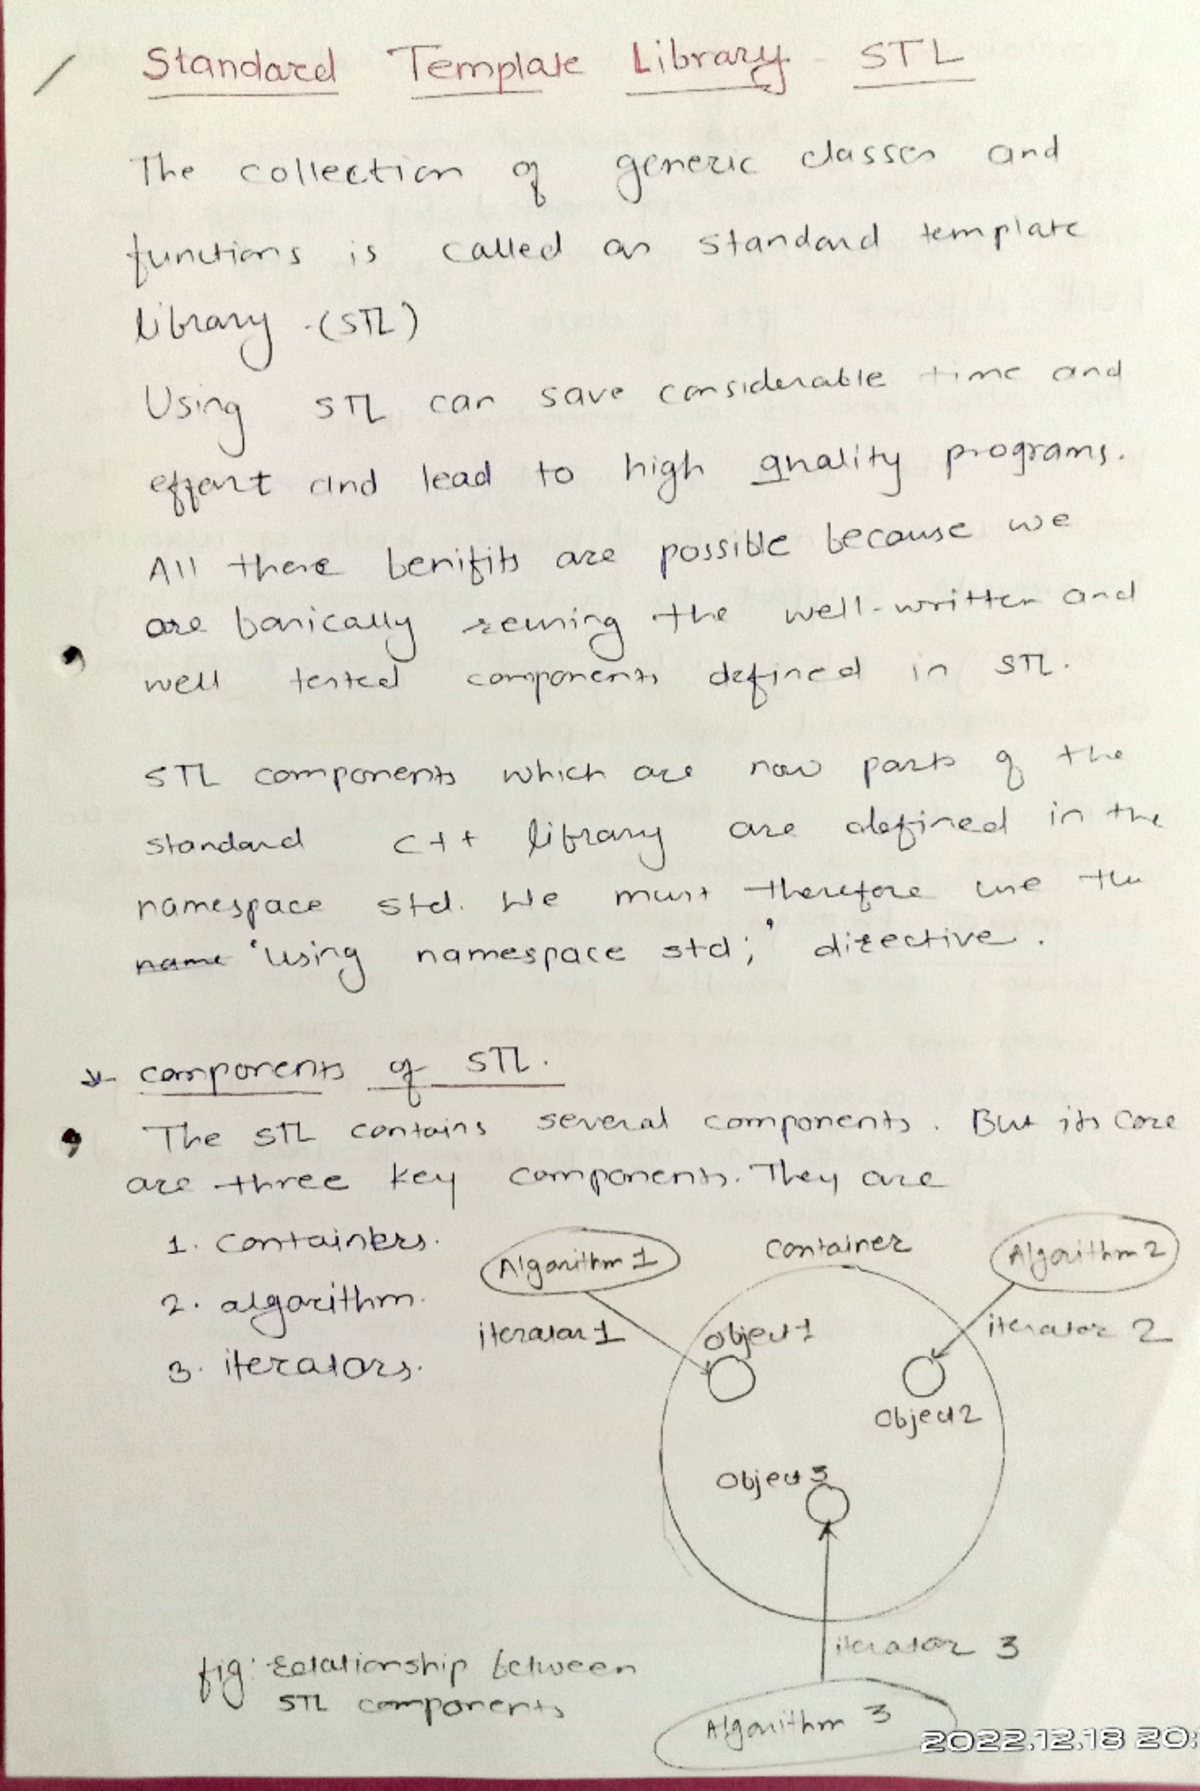 Standard Template Library - STL
The collection of generic classes and
functions is called as standard template
library .(STL)
Using STL can save considerable time and
effort and lead to high quality programs.
All these benifits are possible because we
are basically reusing the well-written and
well tested components defined in STL.
STL components which are now parts of the
standard C++ library are defined in the
namespace std. We must therefore use the
name 'using namespace std;' directive.
components of STL.
The STL contains several components. But its core
are three key components. They are
1. containers.
2. algorithm.
3. iterators.
Algorithm 1
Container
Algorithm 2
iterator 1
object 1
iterator 2
Object 2
Object 3
iterator 3
fig: Relationship between
STL components
Algorithm 3
2022.12.18 20: